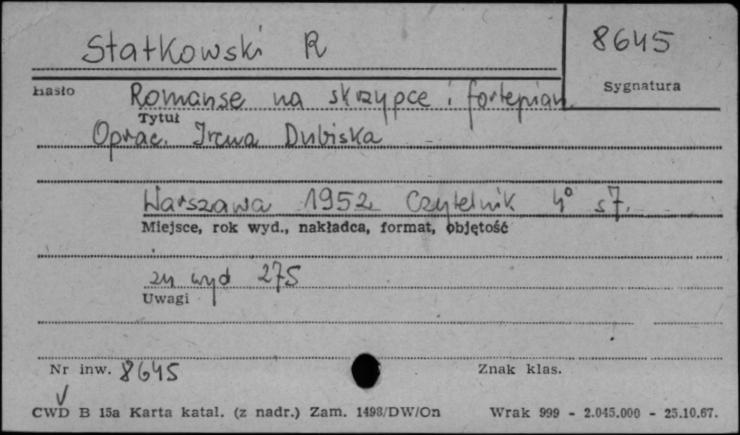 Statkowski R
8645
Sygnatura
Hasło
Romanse na skrzypce i fortepian
Tytuł
Oprac. Irena Dubiska
Warszawa 1952 Czytelnik 4° s 7.
Miejsce, rok wyd., nakładca, format, objętość
zn wyd 275
Uwagi
Nr inw. 8645
Znak klas.
CWD B 15a Karta katal. (z nadr.) Zam. 1498/DW/On Wrak 999 - 2.045.000 - 25.10.67.